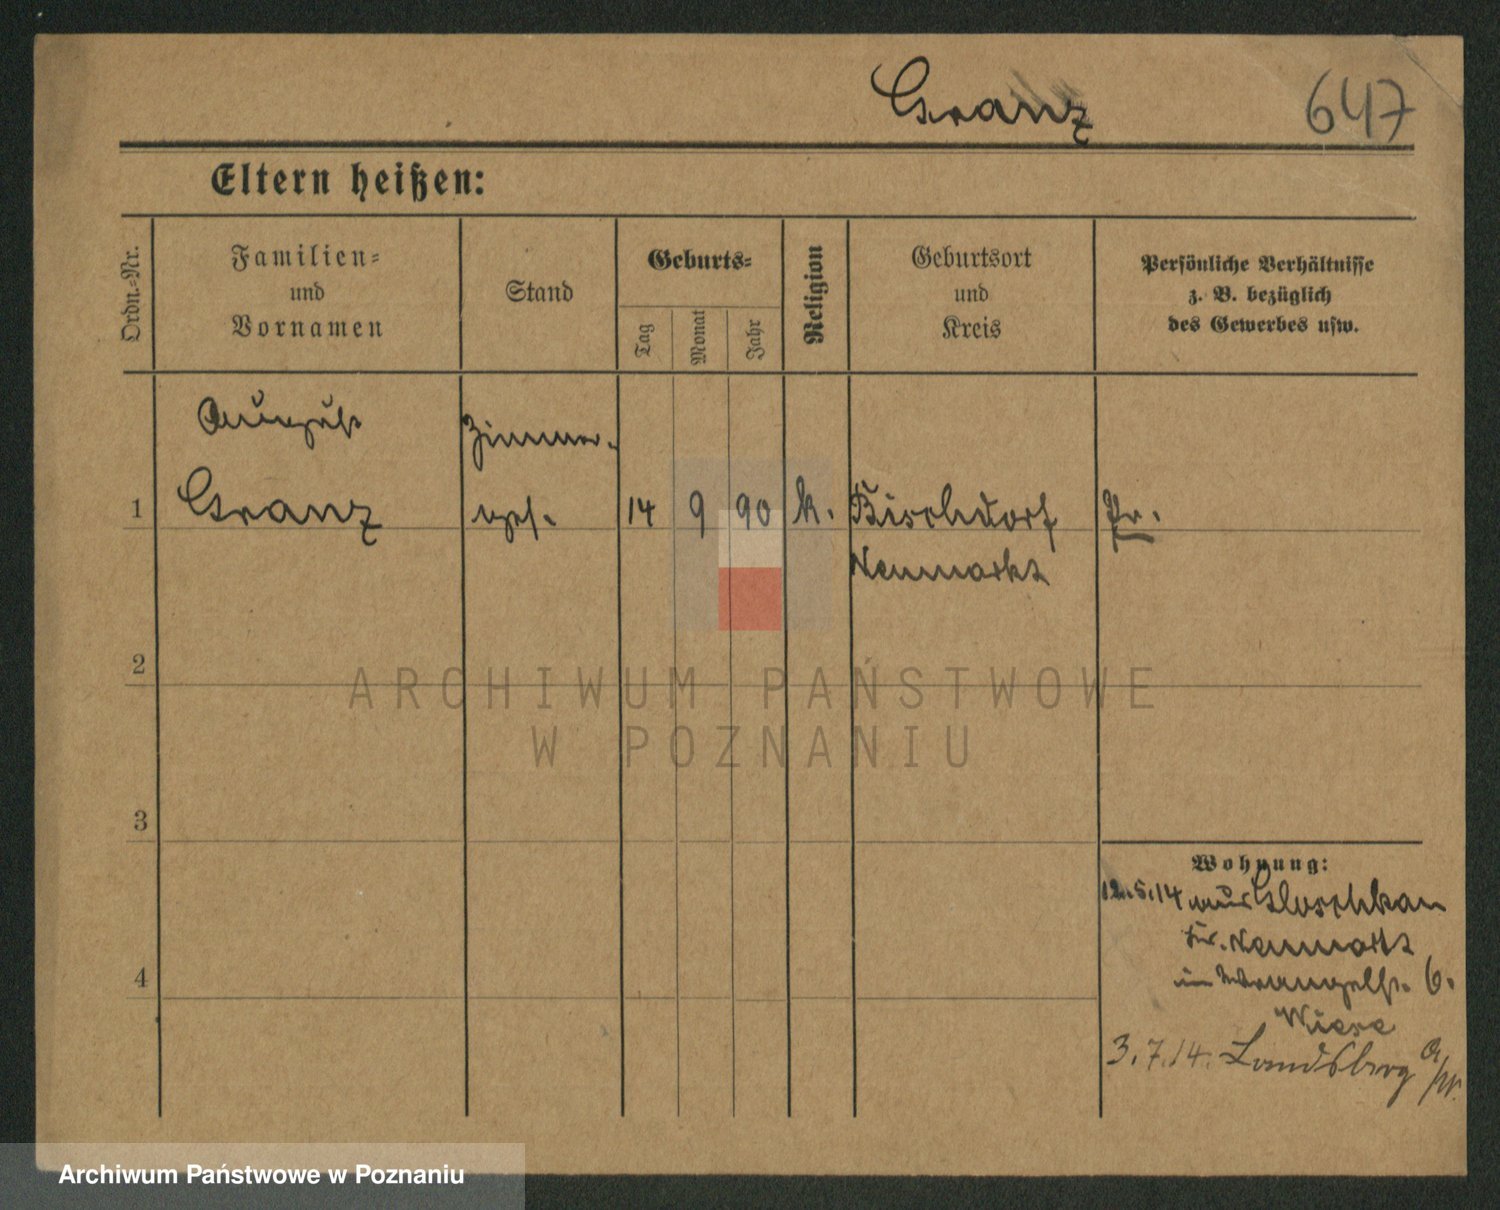 Granz
647
Eltern heißen:
Ordn.-Nr.
Familien-
und
Vornamen
Stand
Geburts-
Tag
Monat
Jahr
Religion
Geburtsort
und
Kreis
Persönliche Verhältnisse
z. B. bezüglich
des Gewerbes usw.
August
Zimmer-
1 Granz ges. 14 9 90 k. Bischdorf Pr.
Neumarkt
2
3
4
Wohnung:
12.5.14 aus
Kr. Neumarkt
in Wrangelst. 6.
Wiese
3.7.14. Landsberg a/W.
ARCHIWUM PAŃSTWOWE
W POZNANIU
Archiwum Państwowe w Poznaniu